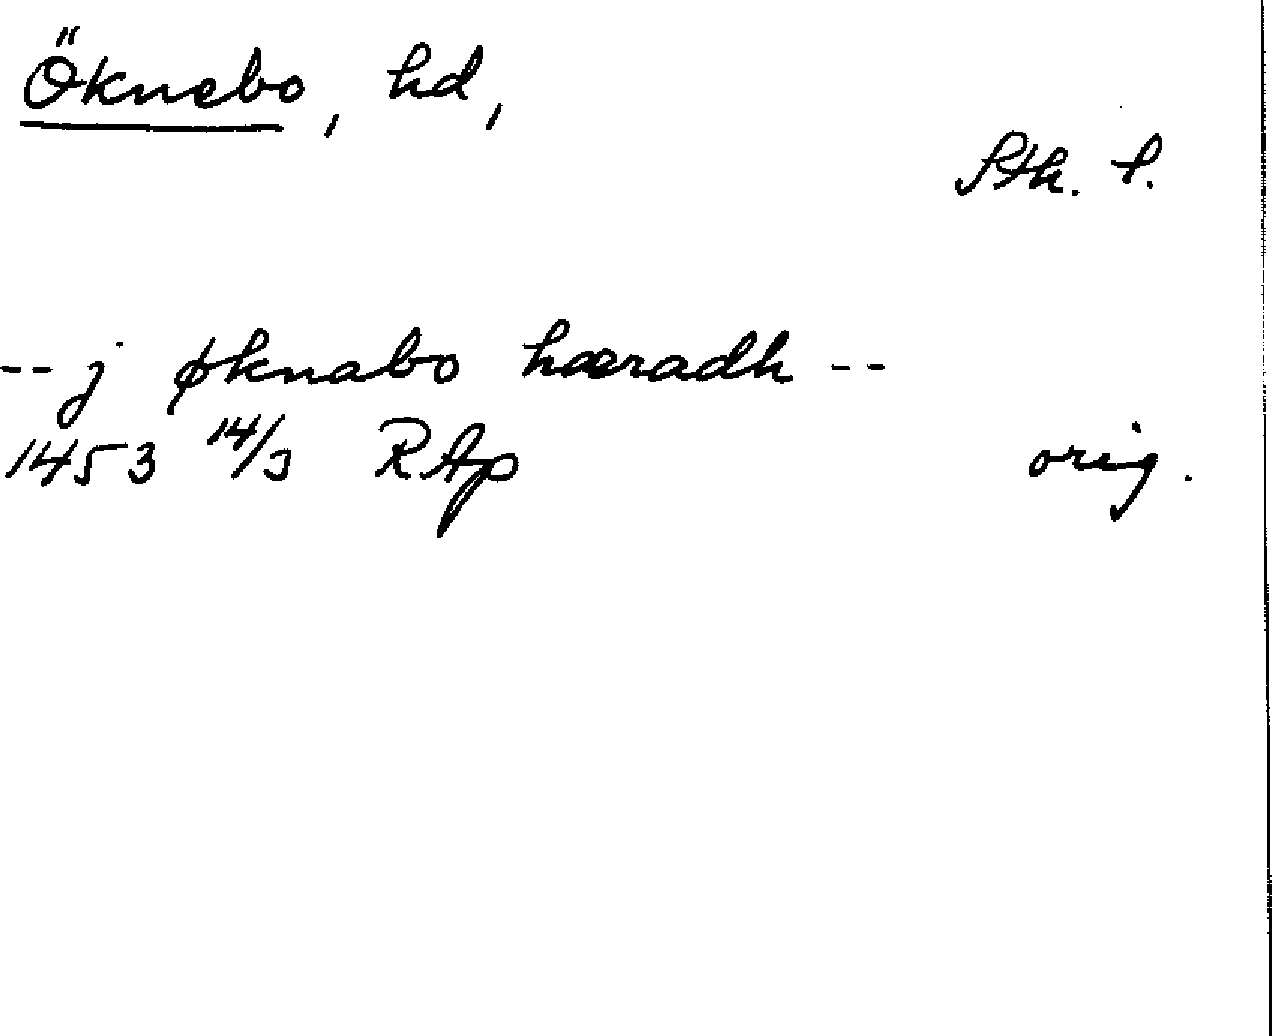 Öknebo, hd,
Sth. l.
-- j øknabo hæradh --
1453 14/3 RAp orig.